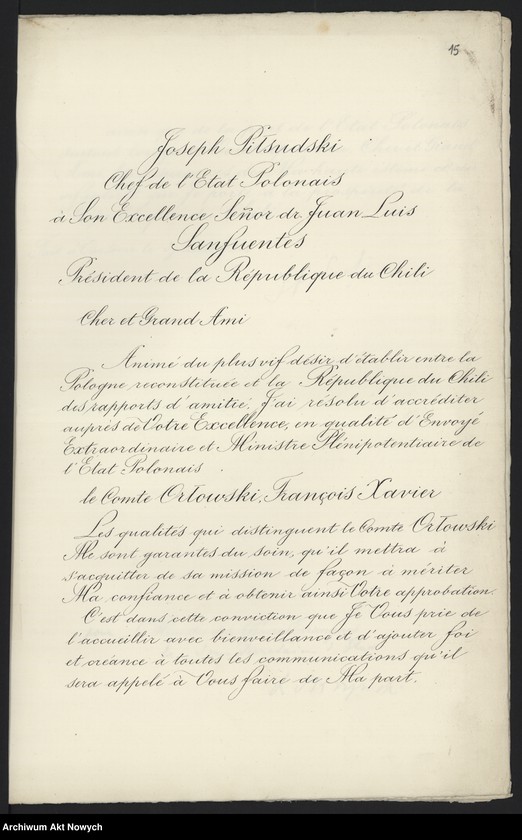 15
Joseph Piłsudski
Chef de l'Etat Polonais
à Son Excellence Señor dr. Juan Luis
Sanfuentes
Président de la République du Chili
Cher et Grand Ami
Animé du plus vif désir d'établir entre la
Pologne reconstituée et la République du Chili
des rapports d'amitié, J'ai résolu d'accréditer
auprès de Votre Excellence, en qualité d'Envoyé
Extraordinaire et Ministre Plénipotentiaire de
l'Etat Polonais
le Comte Orłowski, François Xavier
Les qualités qui distinguent le Comte Orłowski
Me sont garantes du soin, qu'il mettra à
s'acquitter de sa mission de façon à mériter
Ma confiance et à obtenir ainsi Votre approbation.
C'est dans cette conviction que Je Vous prie de
l'accueillir avec bienveillance et d'ajouter foi
et créance à toutes les communications qu'il
sera appelé à Vous faire de Ma part.
Archiwum Akt Nowych